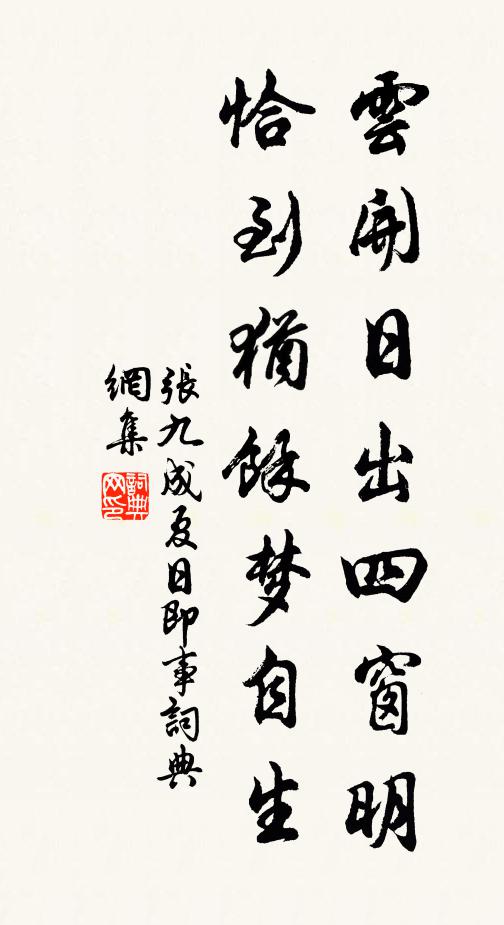 雲開日出四窗明
恰到猶餘梦自生
張九成夏日即事詞典
網集
詞典
网印